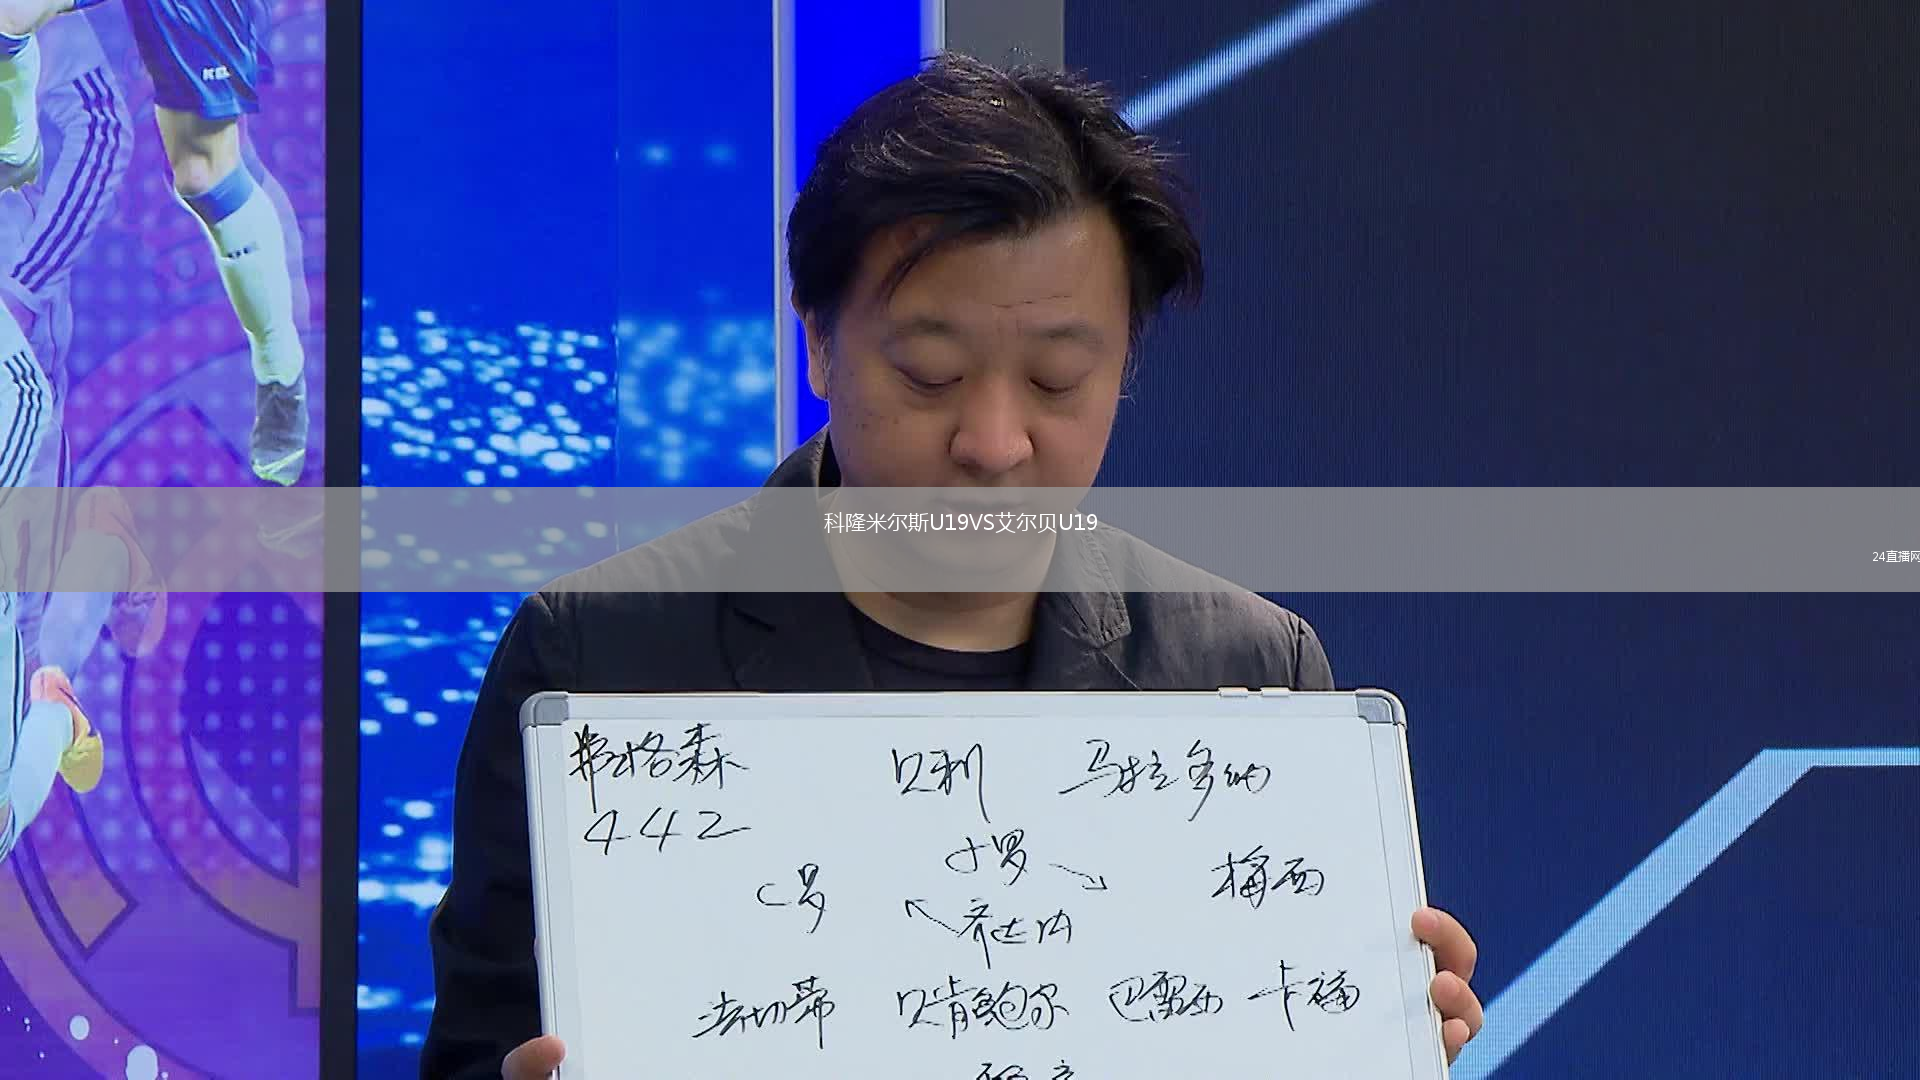 科隆米尔斯U19VS艾尔贝U19
24直播网
弗格森 贝利 马拉多纳
442
小罗
C罗 梅西
齐达内
法切蒂 贝肯鲍尔 巴雷西 卡福